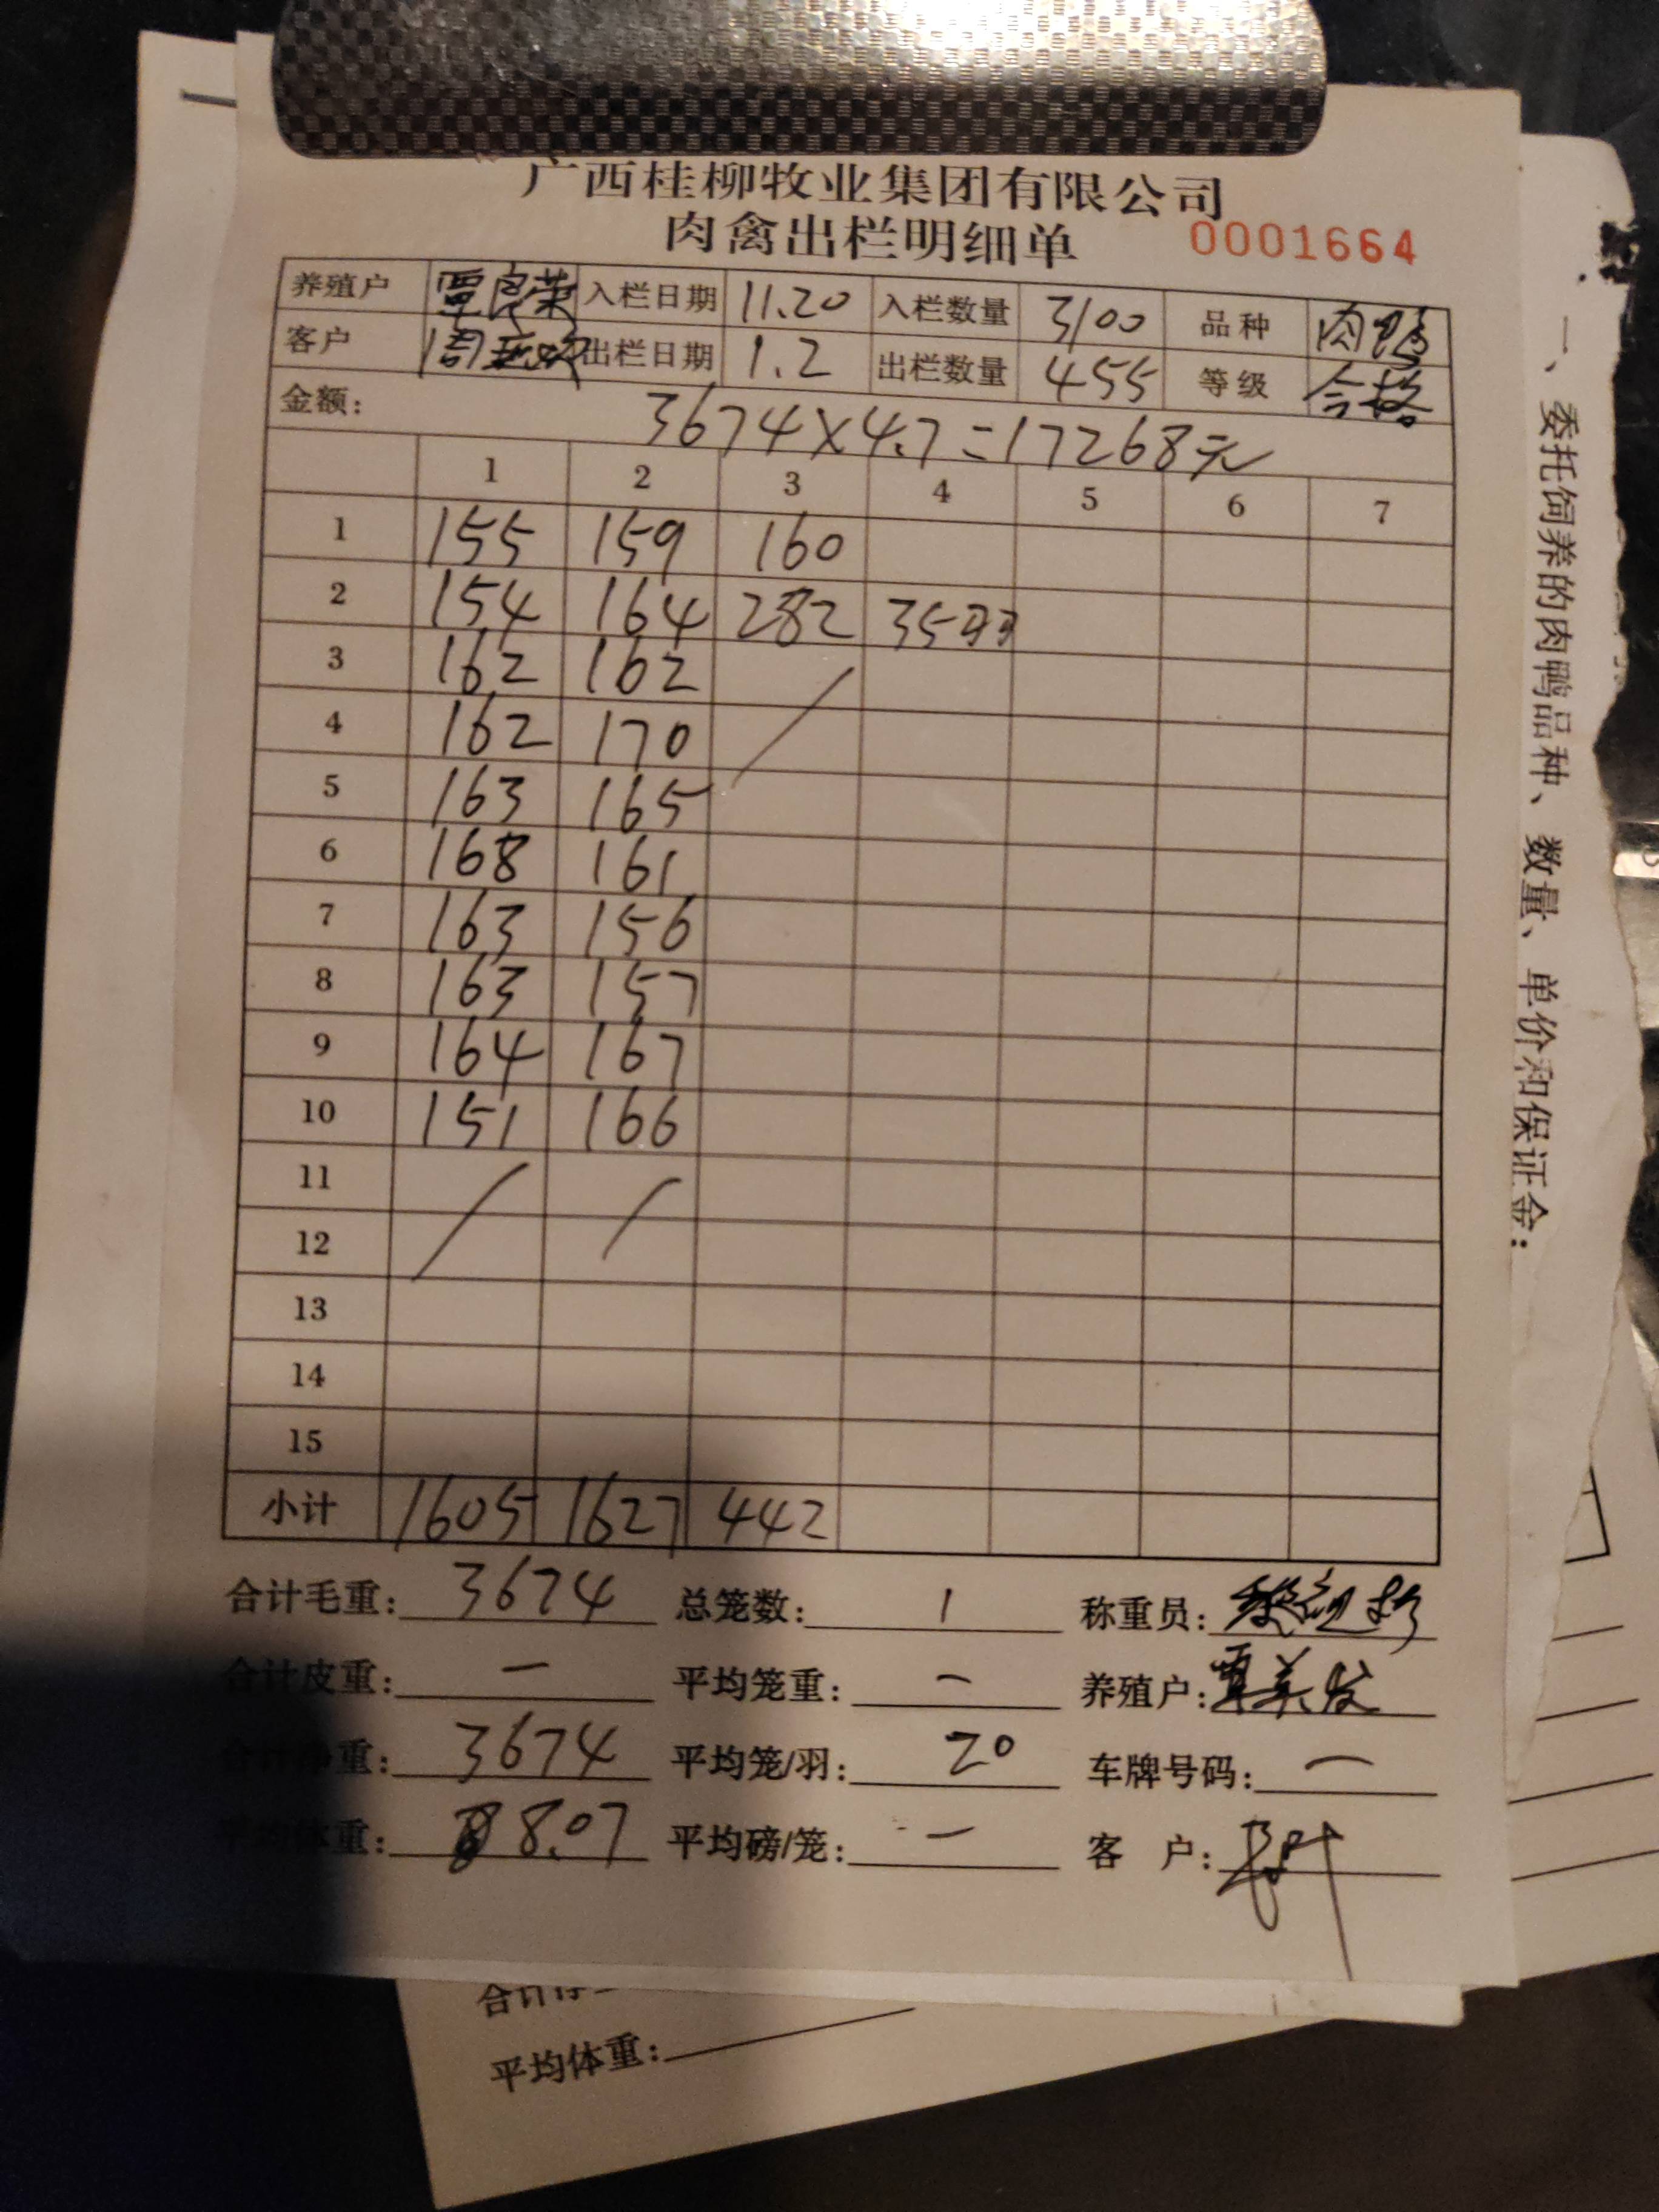 广西桂柳牧业集团有限公司
肉禽出栏明细单 0001664
养殖户 覃良荣 入栏日期 11.20 入栏数量 3100 品种 肉鸭
客户 周 出栏日期 1.2 出栏数量 455 等级 合格
金额: 3674×4.7=17268元
1 2 3 4 5 6 7
1 155 159 160
2 154 164 282 35羽
3 162 162
4 162 170
5 163 165
6 168 161
7 163 156
8 163 157
9 164 167
10 151 166
11
12
13
14
15
小计 1605 1627 442
合计毛重: 3674 总笼数: 1 称重员:
合计皮重: — 平均笼重: — 养殖户: 覃美发
合计净重: 3674 平均笼/羽: 20 车牌号码: —
平均体重: 8.07 平均磅/笼: — 客 户:
一、委托饲养的肉鸭品种、数量、单价和保证金:
平均体重: